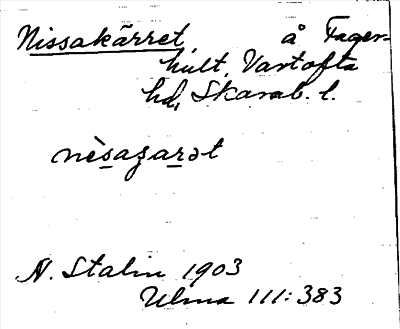 Nissakärret, å Fager-
hult, Vartofta
hd, Skarab. l.
nèsaʒarət
N. Stalin 1903
Ulma 111:383